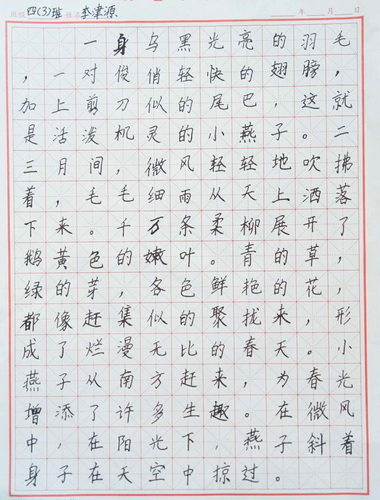 班级 四(3)班 姓名 李津源 年 月 日
一身乌黑光亮的羽毛
，一对俊俏轻快的翅膀，
加上剪刀似的尾巴，这就
是活泼机灵的小燕子。二
三月间，微风轻轻地吹拂
着，毛毛细雨从天上洒落
下来。千万条柔柳展开了
鹅黄色的嫩叶。青的草，
绿的芽，各色鲜艳的花，
都像赶集似的聚拢来，形
成了烂漫无比的春天。小
燕子从南方赶来，为春光
增添了许多生趣。在微风
中，在阳光下，燕子斜着
身子在天空中掠过。